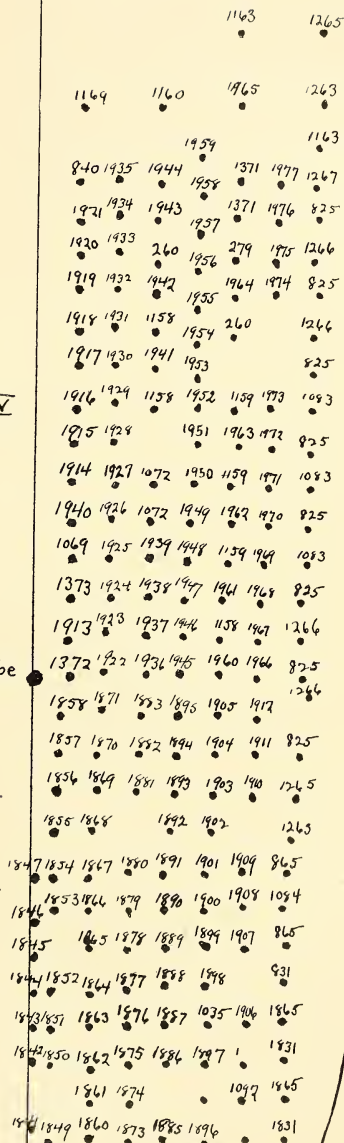 1163 1265
1169 1160 1965 1263
1959 1163
840 1935 1944 1958 1371 1977 1267
1921 1934 1943 1957 1371 1976 825
1920 1933 260 1956 279 1975 1266
1919 1932 1942 1955 1964 1974 825
1918 1931 1158 1954 260 1266
1917 1930 1941 1953 825
1916 1929 1158 1952 1159 1973 1083
1915 1928 1951 1963 1972 825
1914 1927 1072 1950 1159 1971 1083
1940 1926 1072 1949 1962 1970 825
1069 1925 1939 1948 1159 1969 1083
1373 1924 1938 1947 1961 1968 825
1913 1923 1937 1946 1158 1967 1266
1372 1922 1936 1945 1960 1966 825
1266
1858 1871 1883 1895 1905 1912
1857 1870 1882 1894 1904 1911 825
1856 1869 1881 1893 1903 1910 1265
1855 1868 1892 1902 1263
1847 1854 1867 1880 1891 1901 1909 865
1846 1853 1866 1879 1890 1900 1908 1084
1845 1865 1878 1889 1899 1907 865
1844 1852 1864 1877 1888 1898 831
1843 1851 1863 1876 1887 1035 1906 1865
1842 1850 1862 1875 1886 1897 1 1831
1861 1874 1092 1865
1849 1860 1873 1885 1896 1831